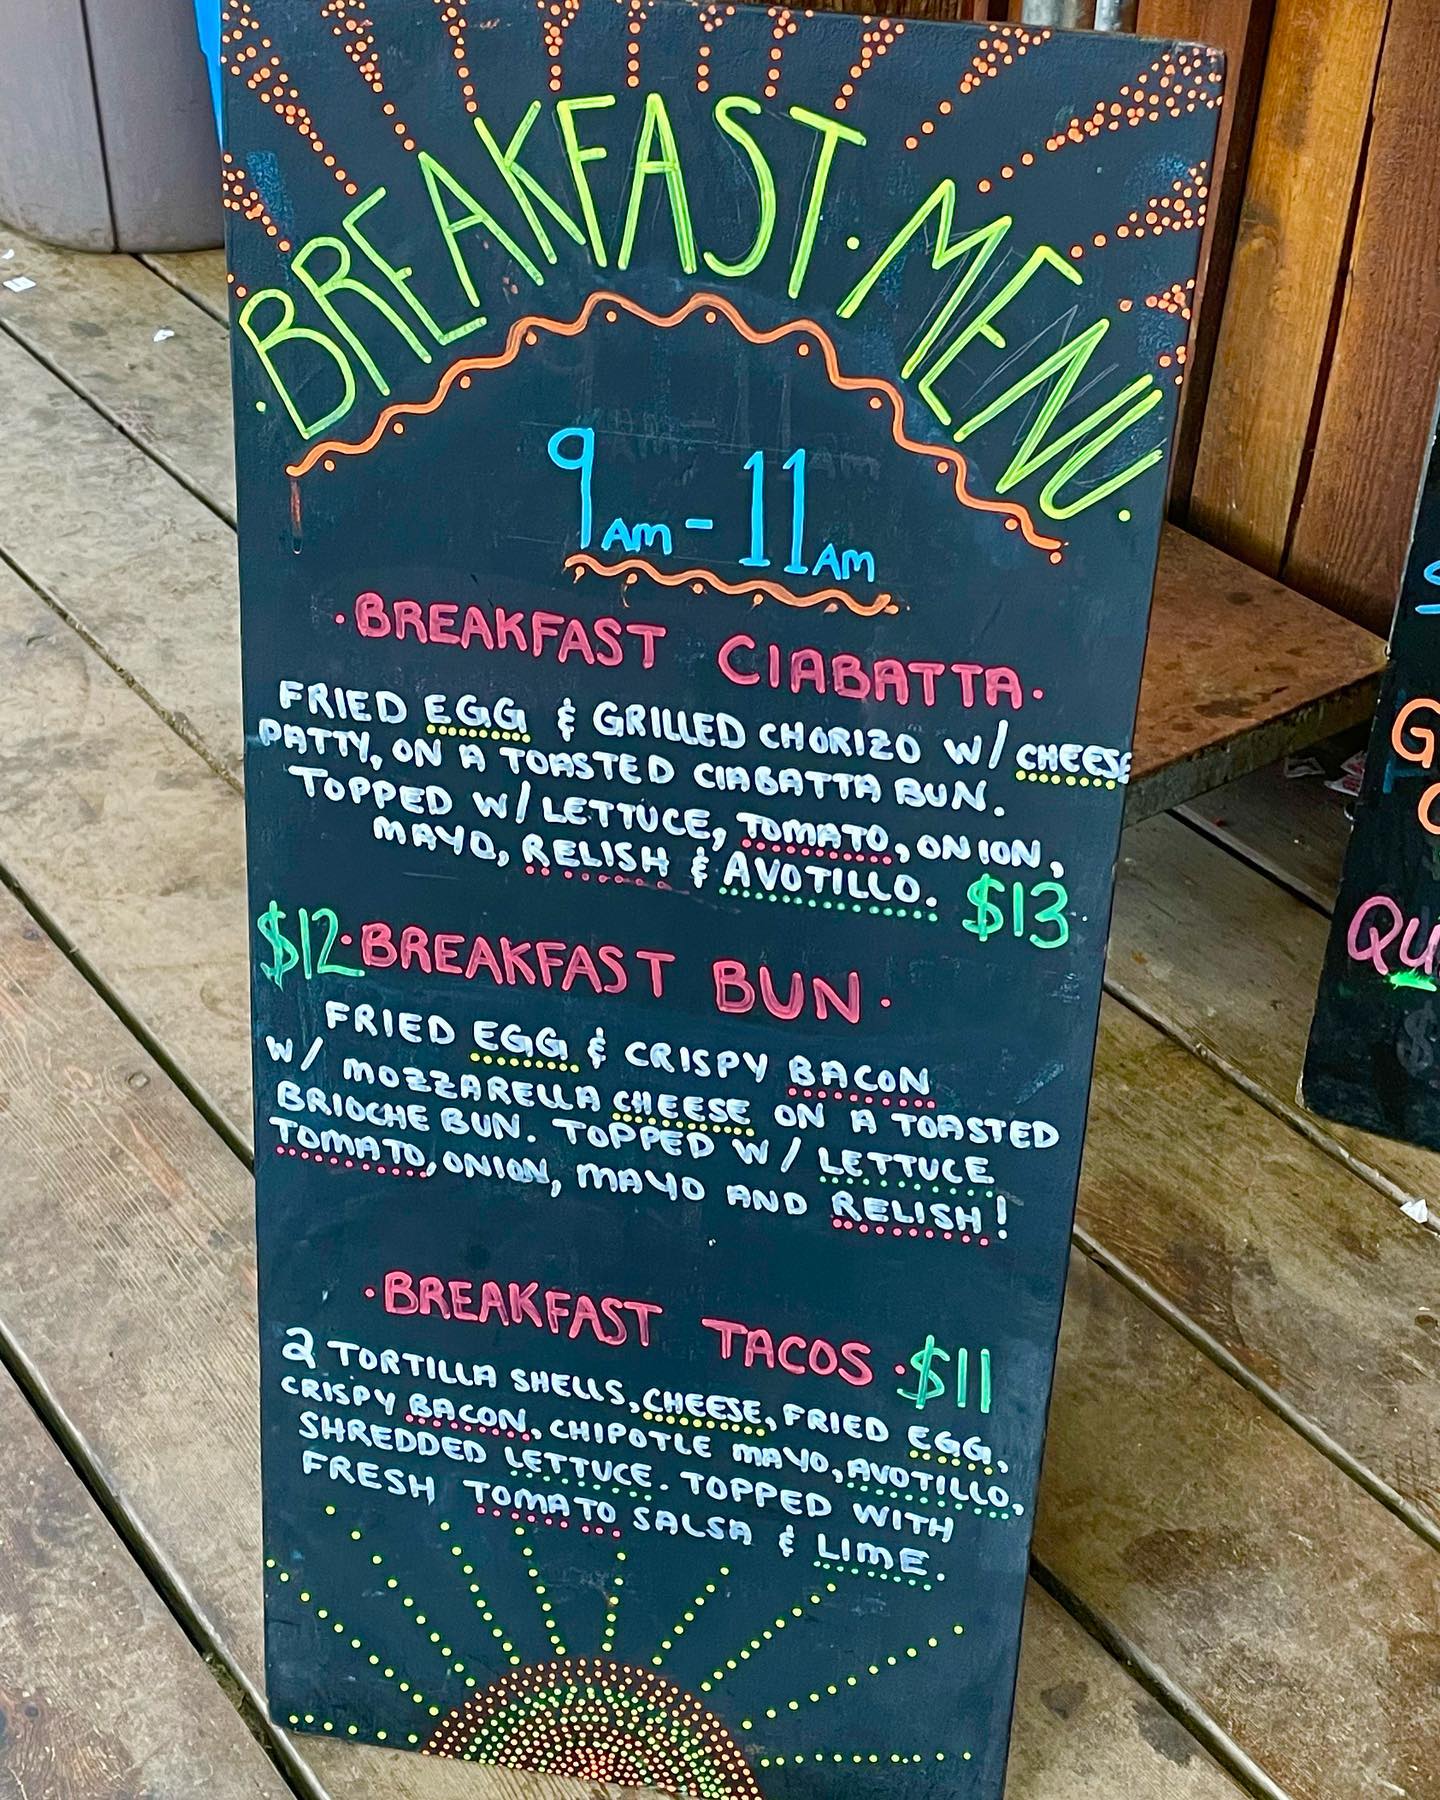 ·BREAKFAST·MENU·
9AM - 11AM
·BREAKFAST CIABATTA·
FRIED EGG & GRILLED CHORIZO W/ CHEESE
PATTY, ON A TOASTED CIABATTA BUN.
TOPPED W/ LETTUCE, TOMATO, ONION,
MAYO, RELISH & AVOTILLO. $13
$12·BREAKFAST BUN·
FRIED EGG & CRISPY BACON
W/ MOZZARELLA CHEESE ON A TOASTED
BRIOCHE BUN. TOPPED W/ LETTUCE
TOMATO, ONION, MAYO AND RELISH!
·BREAKFAST TACOS·$11
2 TORTILLA SHELLS, CHEESE, FRIED EGG,
CRISPY BACON, CHIPOTLE MAYO, AVOTILLO,
SHREDDED LETTUCE. TOPPED WITH
FRESH TOMATO SALSA & LIME.